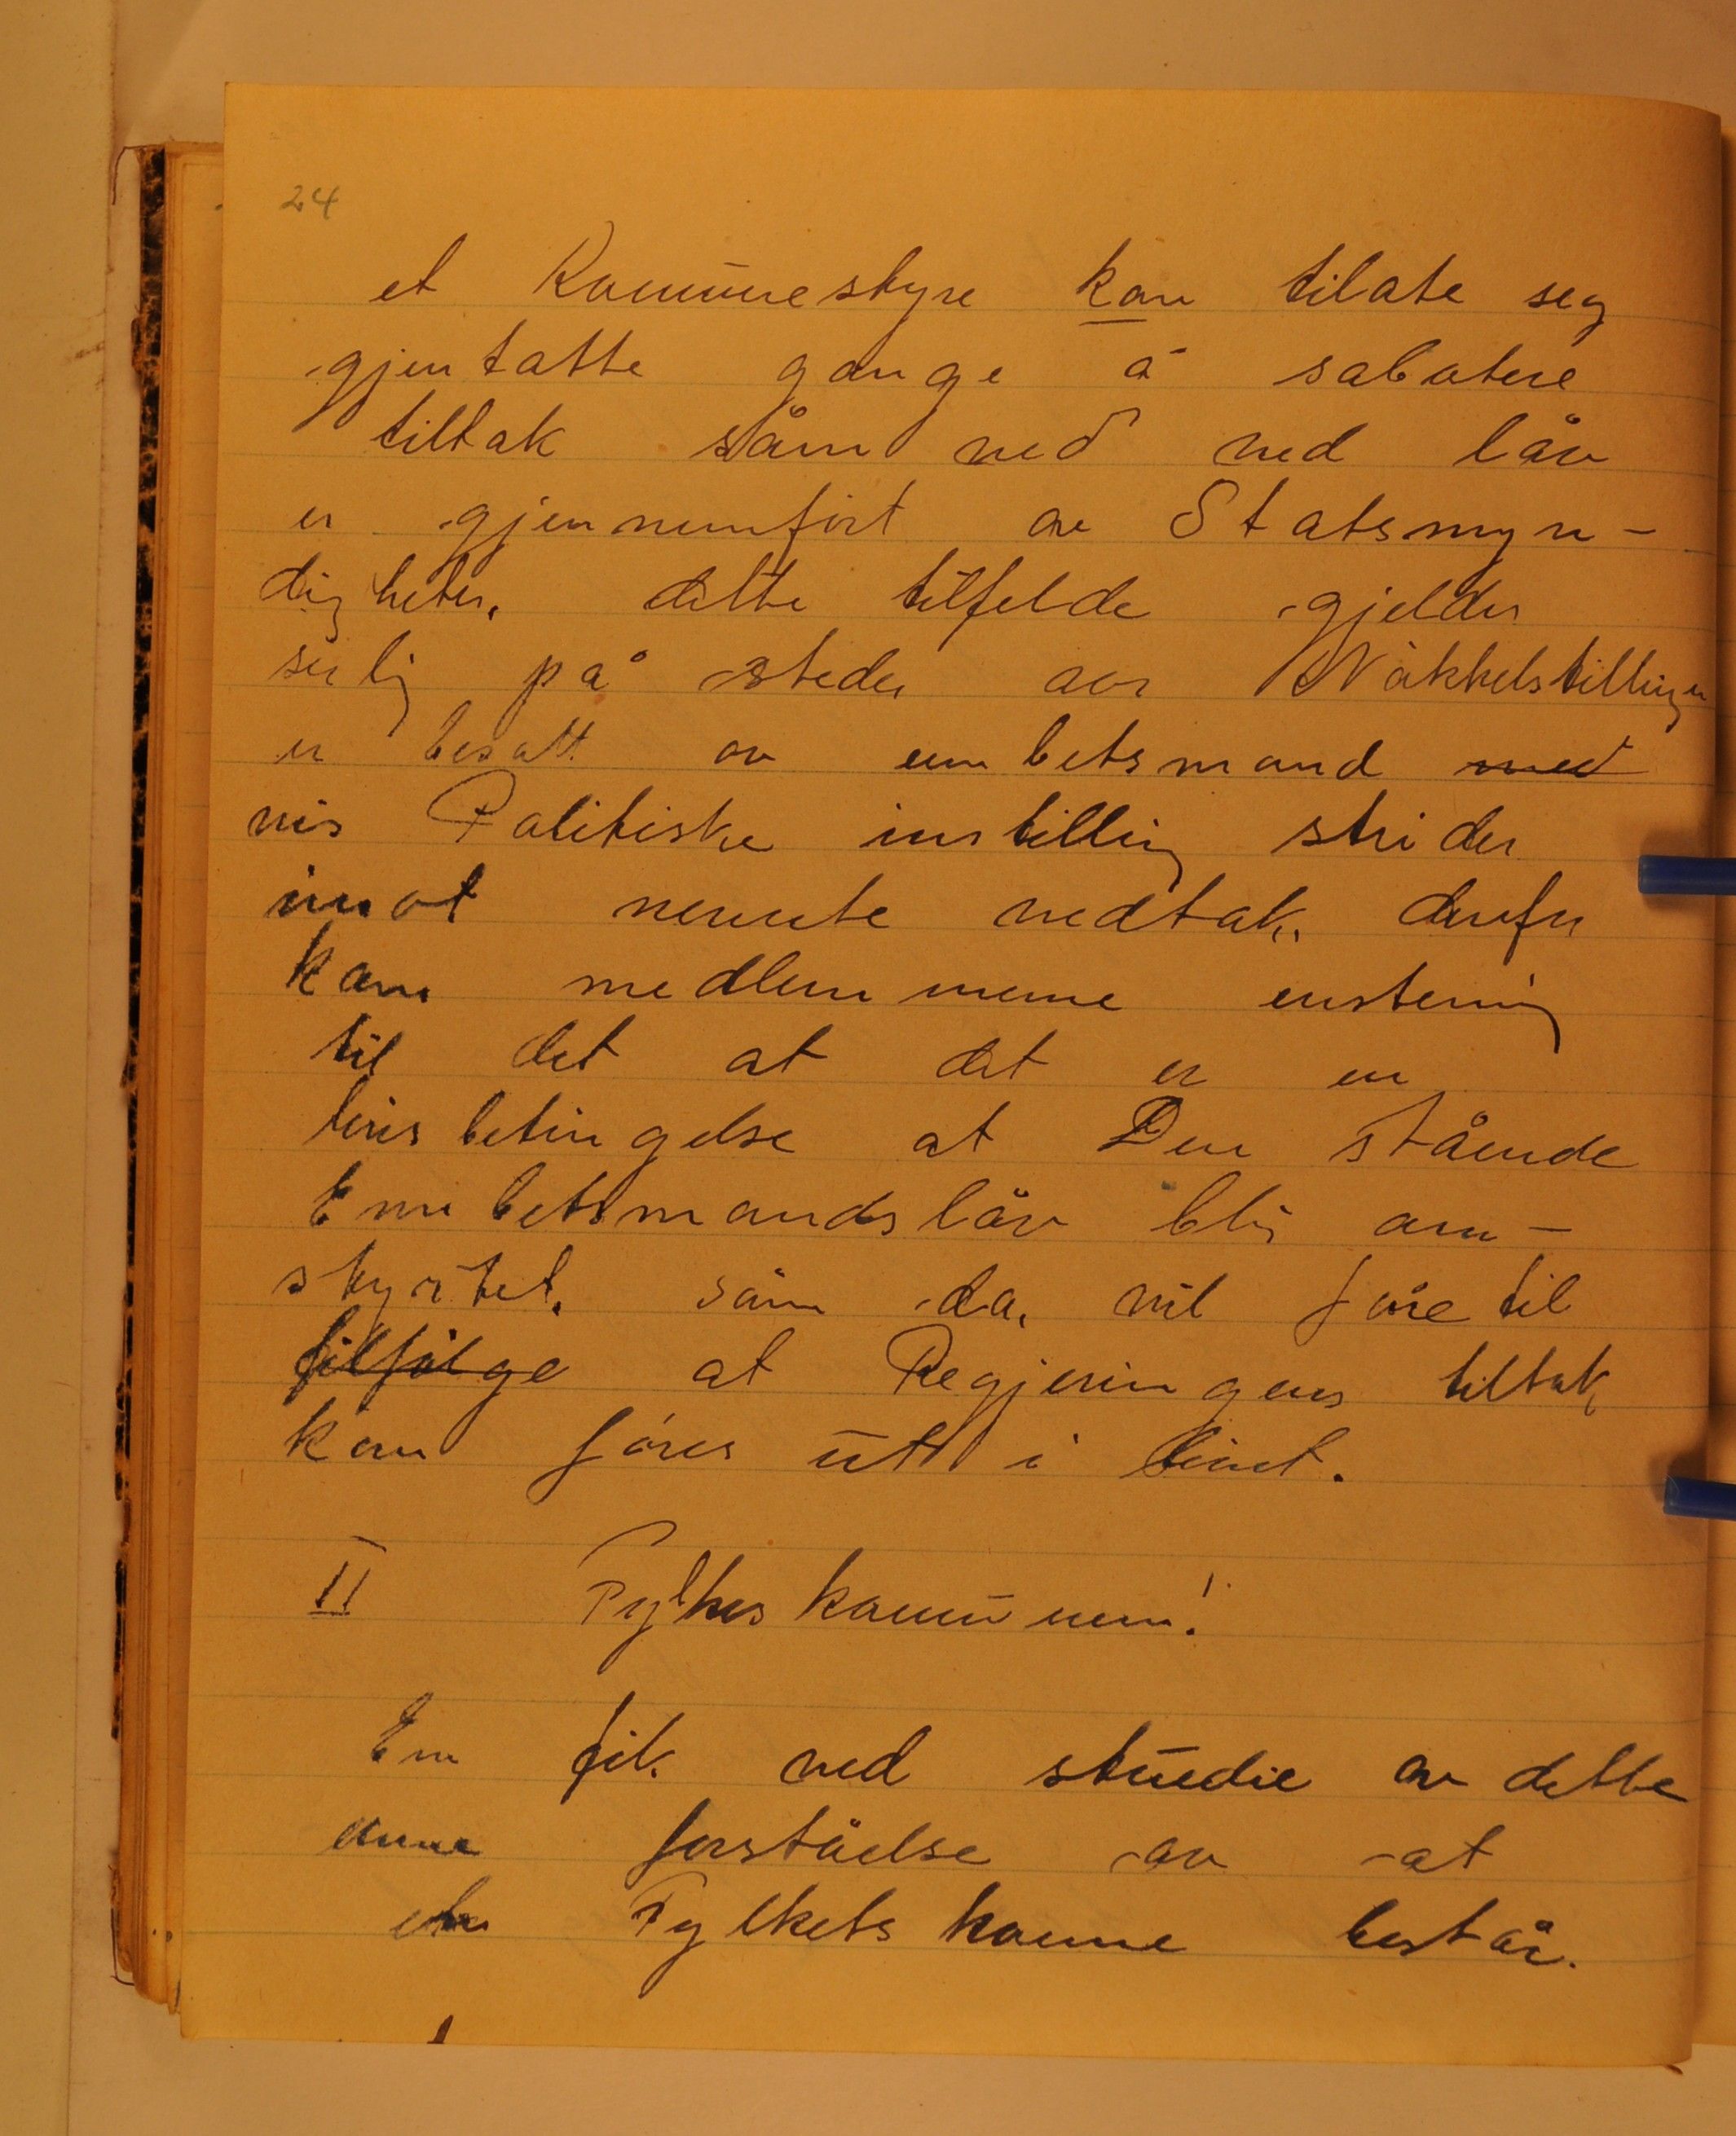 24
et Kommunestyre kan tilate seg
gjentatte gange å sabotere
tiltak såm ved ved låv
er gjennemført av Statsmyn-
digheter. dette tilfelde gjelder
serlig på steder vor Nøkkelstillinger
er besatt av embetsmand med
vis Politiske instilling strider
imot nevnte vedtak. derfor
kam medlemmene enstemig
til det at det er en
livsbetingelse at Den stående
Embetsmandslåv blir om-
styrtet. såm da, vil føre til
tilfølge at Regjeringens tiltak
kan føres ut i livet.
II Fylkeskommunen!
En fik ved studie av dette
emne forståelse av at
Fylkets består.